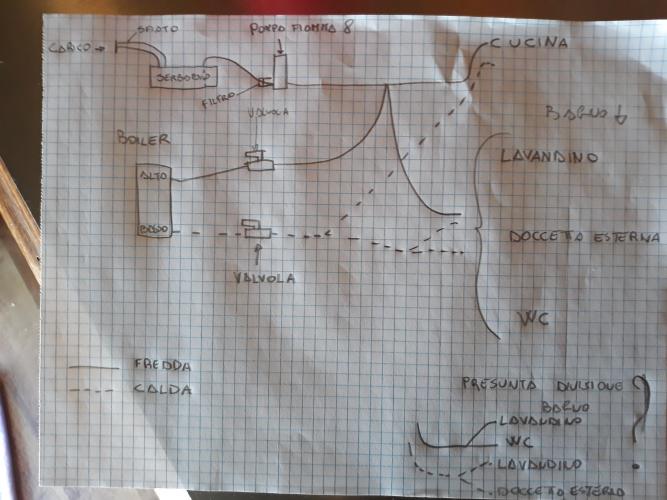 SFIATO
POMPA FIAMMA 8
CARICO
CUCINA
SERBATOIO
FILTRO
VALVOLA
BAGNO
BOILER
LAVANDINO
ALTO
DOCCETTA ESTERNA
BASSO
VALVOLA
WC
FREDDA
CALDA
PRESUNTA DIVISIONE
BAGNO
?
LAVANDINO
WC
LAVANDINO
DOCCETTA ESTERNO